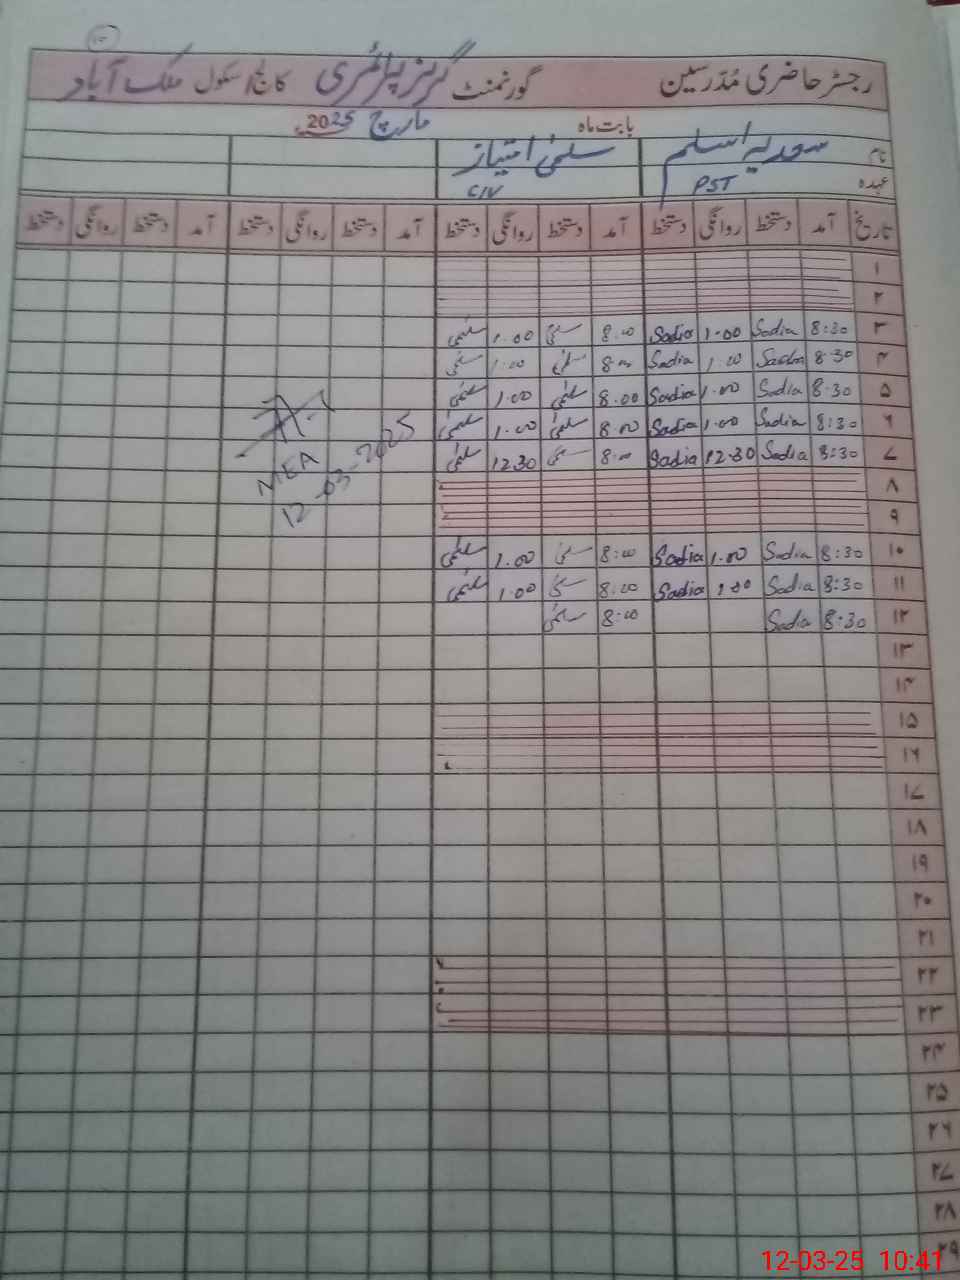 رجسٹر حاضری مُدرسین گورنمنٹ گرلز پرائمری کالج/سکول ملک آباد
بابت ماہ مارچ 2025
نام سعدیہ اسلم سلمیٰ امتیاز
عہدہ PST C/V
تاریخ آمد دستخط روانگی دستخط آمد دستخط روانگی دستخط آمد دستخط روانگی دستخط آمد دستخط روانگی دستخط
۱
۲
۳ 8:30 Sadia 1.00 Sadia 8.00 سلمیٰ 1.00 سلمیٰ
۴ 8.30 Sadia 1.00 Sadia 8.00 سلمیٰ 1.00 سلمیٰ
۵ 8:30 Sadia 1.00 Sadia 8.00 سلمیٰ 1.00 سلمیٰ
۶ 8:30 Sadia 1.00 Sadia 8.00 سلمیٰ 1.00 سلمیٰ
۷ 8:30 Sadia 12.30 Sadia 8:00 سلمیٰ 12.30 سلمیٰ
MEA
12-03-2025
۸
۹
۱۰ 8:30 Sadia 1.00 Sadia 8:00 سلمیٰ 1.00 سلمیٰ
۱۱ 8:30 Sadia 1.00 Sadia 8.00 سلمیٰ 1.00 سلمیٰ
۱۲ 8:30 Sadia 8:00 سلمیٰ
۱۳
۱۴
۱۵
۱۶
۱۷
۱۸
۱۹
۲۰
۲۱
۲۲
۲۳
۲۴
۲۵
۲۶
۲۷
۲۸
۲۹
12-03-25 10:41